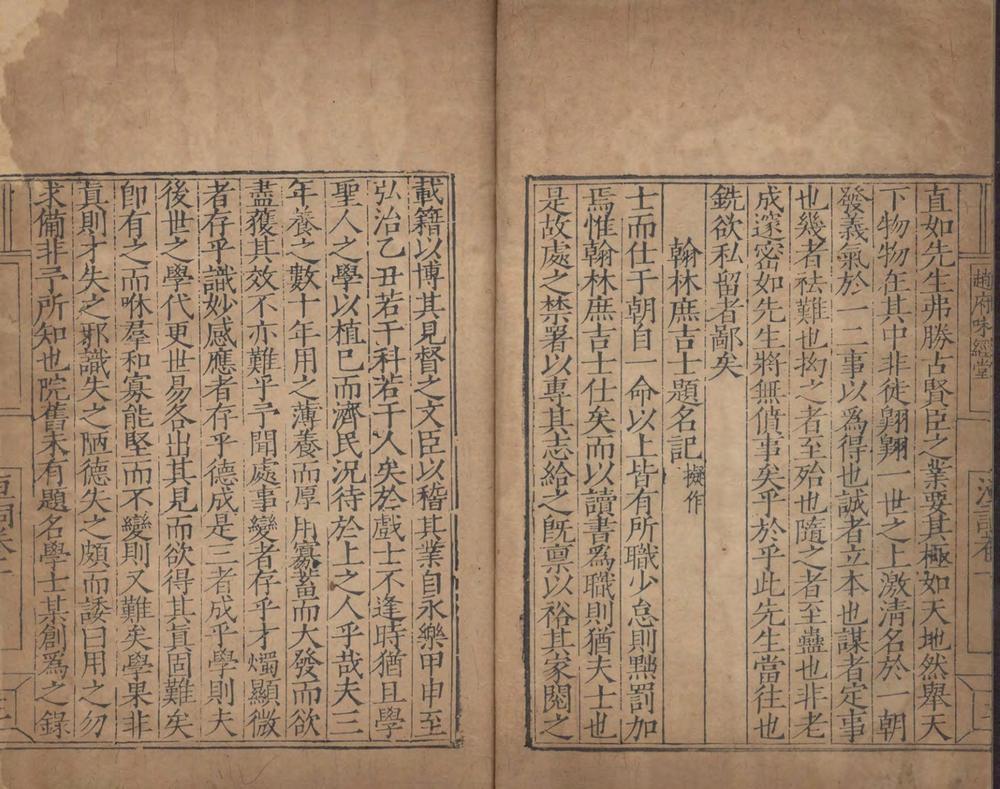 趙府味經堂
直如先生弗勝占賢臣之業要其極如天地然舉天
下物物在其中非徒翱翔一世之上激清名於一朝
發義氣於一二事以為得也誠者立本也謀者定事
也幾者祛難也拘之者至殆也隨之者至蠱也非老
成邃密如先生將無僨事矣乎於乎此先生當往也
銑欲私留者鄙矣
翰林庶吉士題名記 擬作
士而仕于朝自一命以上皆有所職少怠則黜罰加
焉惟翰林庶吉士仕矣而以讀書為職則猶夫士也
是故處之禁署以專其志給之既稟以裕其家閱之
載籍以博其見督之文臣以稽其業自永樂甲申至
弘治乙丑若干科若干人矣於戲士不逢時猶且學
聖人之學以植己而濟民況待於上之人乎哉夫三
年養之數十年用之薄養而厚用寡蓄而大發而欲
盡獲其效不亦難乎予聞處事變者存乎才燭顯微
者存乎識妙感應者存乎德成是三者成乎學則夫
後世之學代更世易各出其見而欲得其真固難矣
即有之而咻羣和寡能堅而不變則又難矣學果非
真則才失之邪識失之陋德失之頗而諉曰用之勿
求備非予所知也院舊未有題名學士某創為之錄